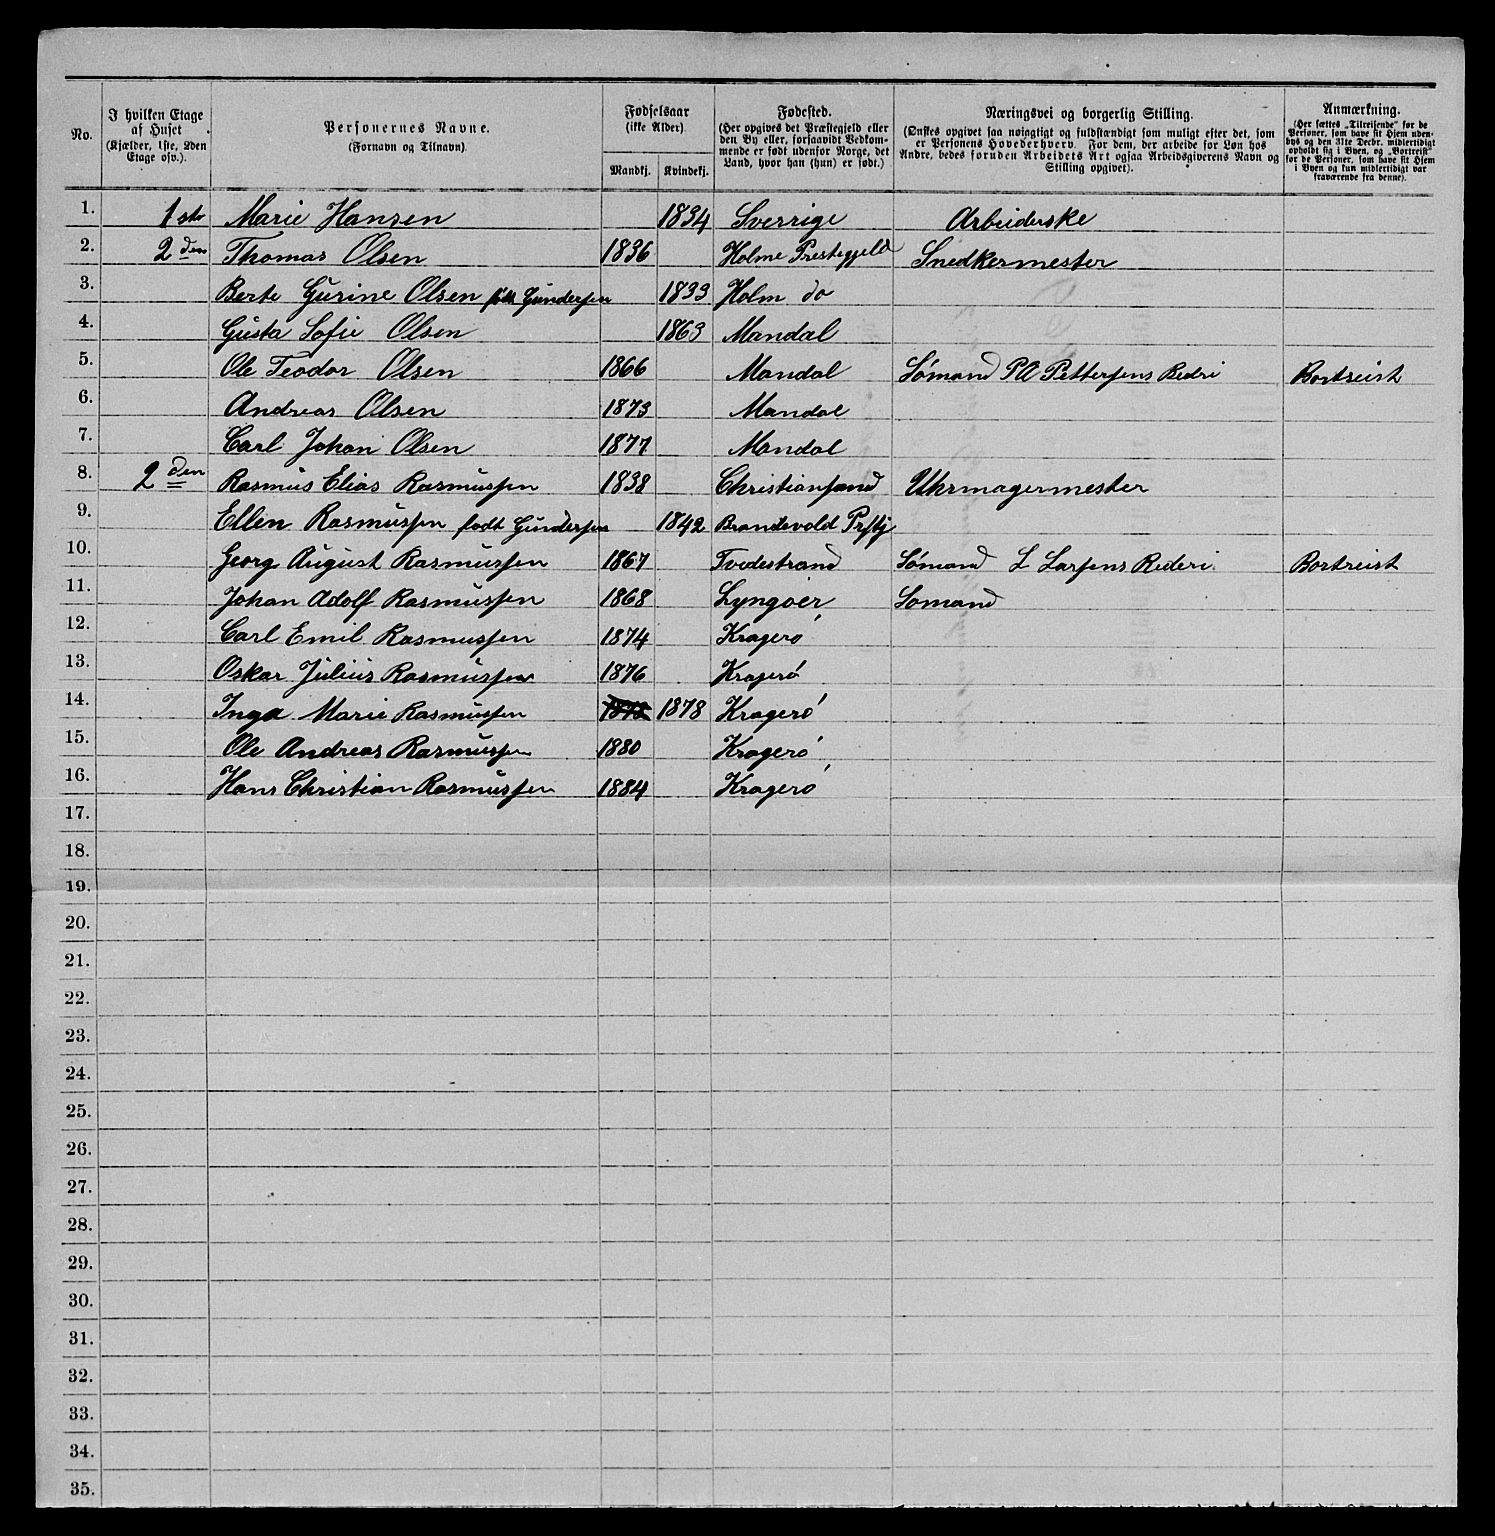 No. I hvilken Etage af Huset (Kjælder, 1ste, 2den Etage osv.). Personernes Navne. (Fornavn og Tilnavn). Fødselsaar (ikke Alder) Mandkj. Kvindekj. Fødested. (Her opgives det Præstegjeld eller den By eller, forsaavidt Vedkommende er født udenfor Norge, det Land, hvor han (hun) er født.) Næringsvei og borgerlig Stilling. (Ønskes opgivet saa nøiagtigt og fuldstændigt som muligt efter det, som er Personens Hovederhverv. For dem, der arbeide for Løn hos Andre, bedes foruden Arbeidets Art ogsaa Arbeidsgiverens Navn og Stilling opgivet). Anmærkning. (Her sættes „Tilreisende“ for de Personer, som have sit Hjem udenbys og den 31te Decbr. midlertidigt opholdt sig i Byen, og „Bortreist“ for de Personer, som have sit Hjem i Byen og kun midlertidigt var fraværende fra denne).
1. 1ste Marie Hansen 1834 Sverrige Arbeiderske
2. 2den Thomas Olsen 1836 Holme Prestegjeld Snedkermester
3. Berte Gurine Olsen født Gundersen 1833 Holm do
4. Gusta Sofie Olsen 1863 Mandal
5. Ole Teodor Olsen 1866 Mandal Sømand PA Pettersens Rederi Bortreist
6. Andreas Olsen 1873 Mandal
7. Carl Johan Olsen 1877 Mandal
8. 2den Rasmus Elias Rasmussen 1838 Christiansand Uhrmagermester
9. Ellen Rasmussen født Gundersen 1842 Brandsvold Prstgj
10. Georg August Rasmussen 1867 Tvedestrand Sømand L Larsens Rederi Bortreist
11. Johan Adolf Rasmussen 1868 Lyngøer Sømand
12. Carl Emil Rasmussen 1874 Kragerø
13. Oskar Julius Rasmussen 1876 Kragerø
14. Inga Marie Rasmussen 1878 1878 Kragerø
15. Ole Andreas Rasmussen 1880 Kragerø
16. Hans Christian Rasmussen 1884 Kragerø
17.
18.
19.
20.
21.
22.
23.
24.
25.
26.
27.
28.
29.
30.
31.
32.
33.
34.
35.